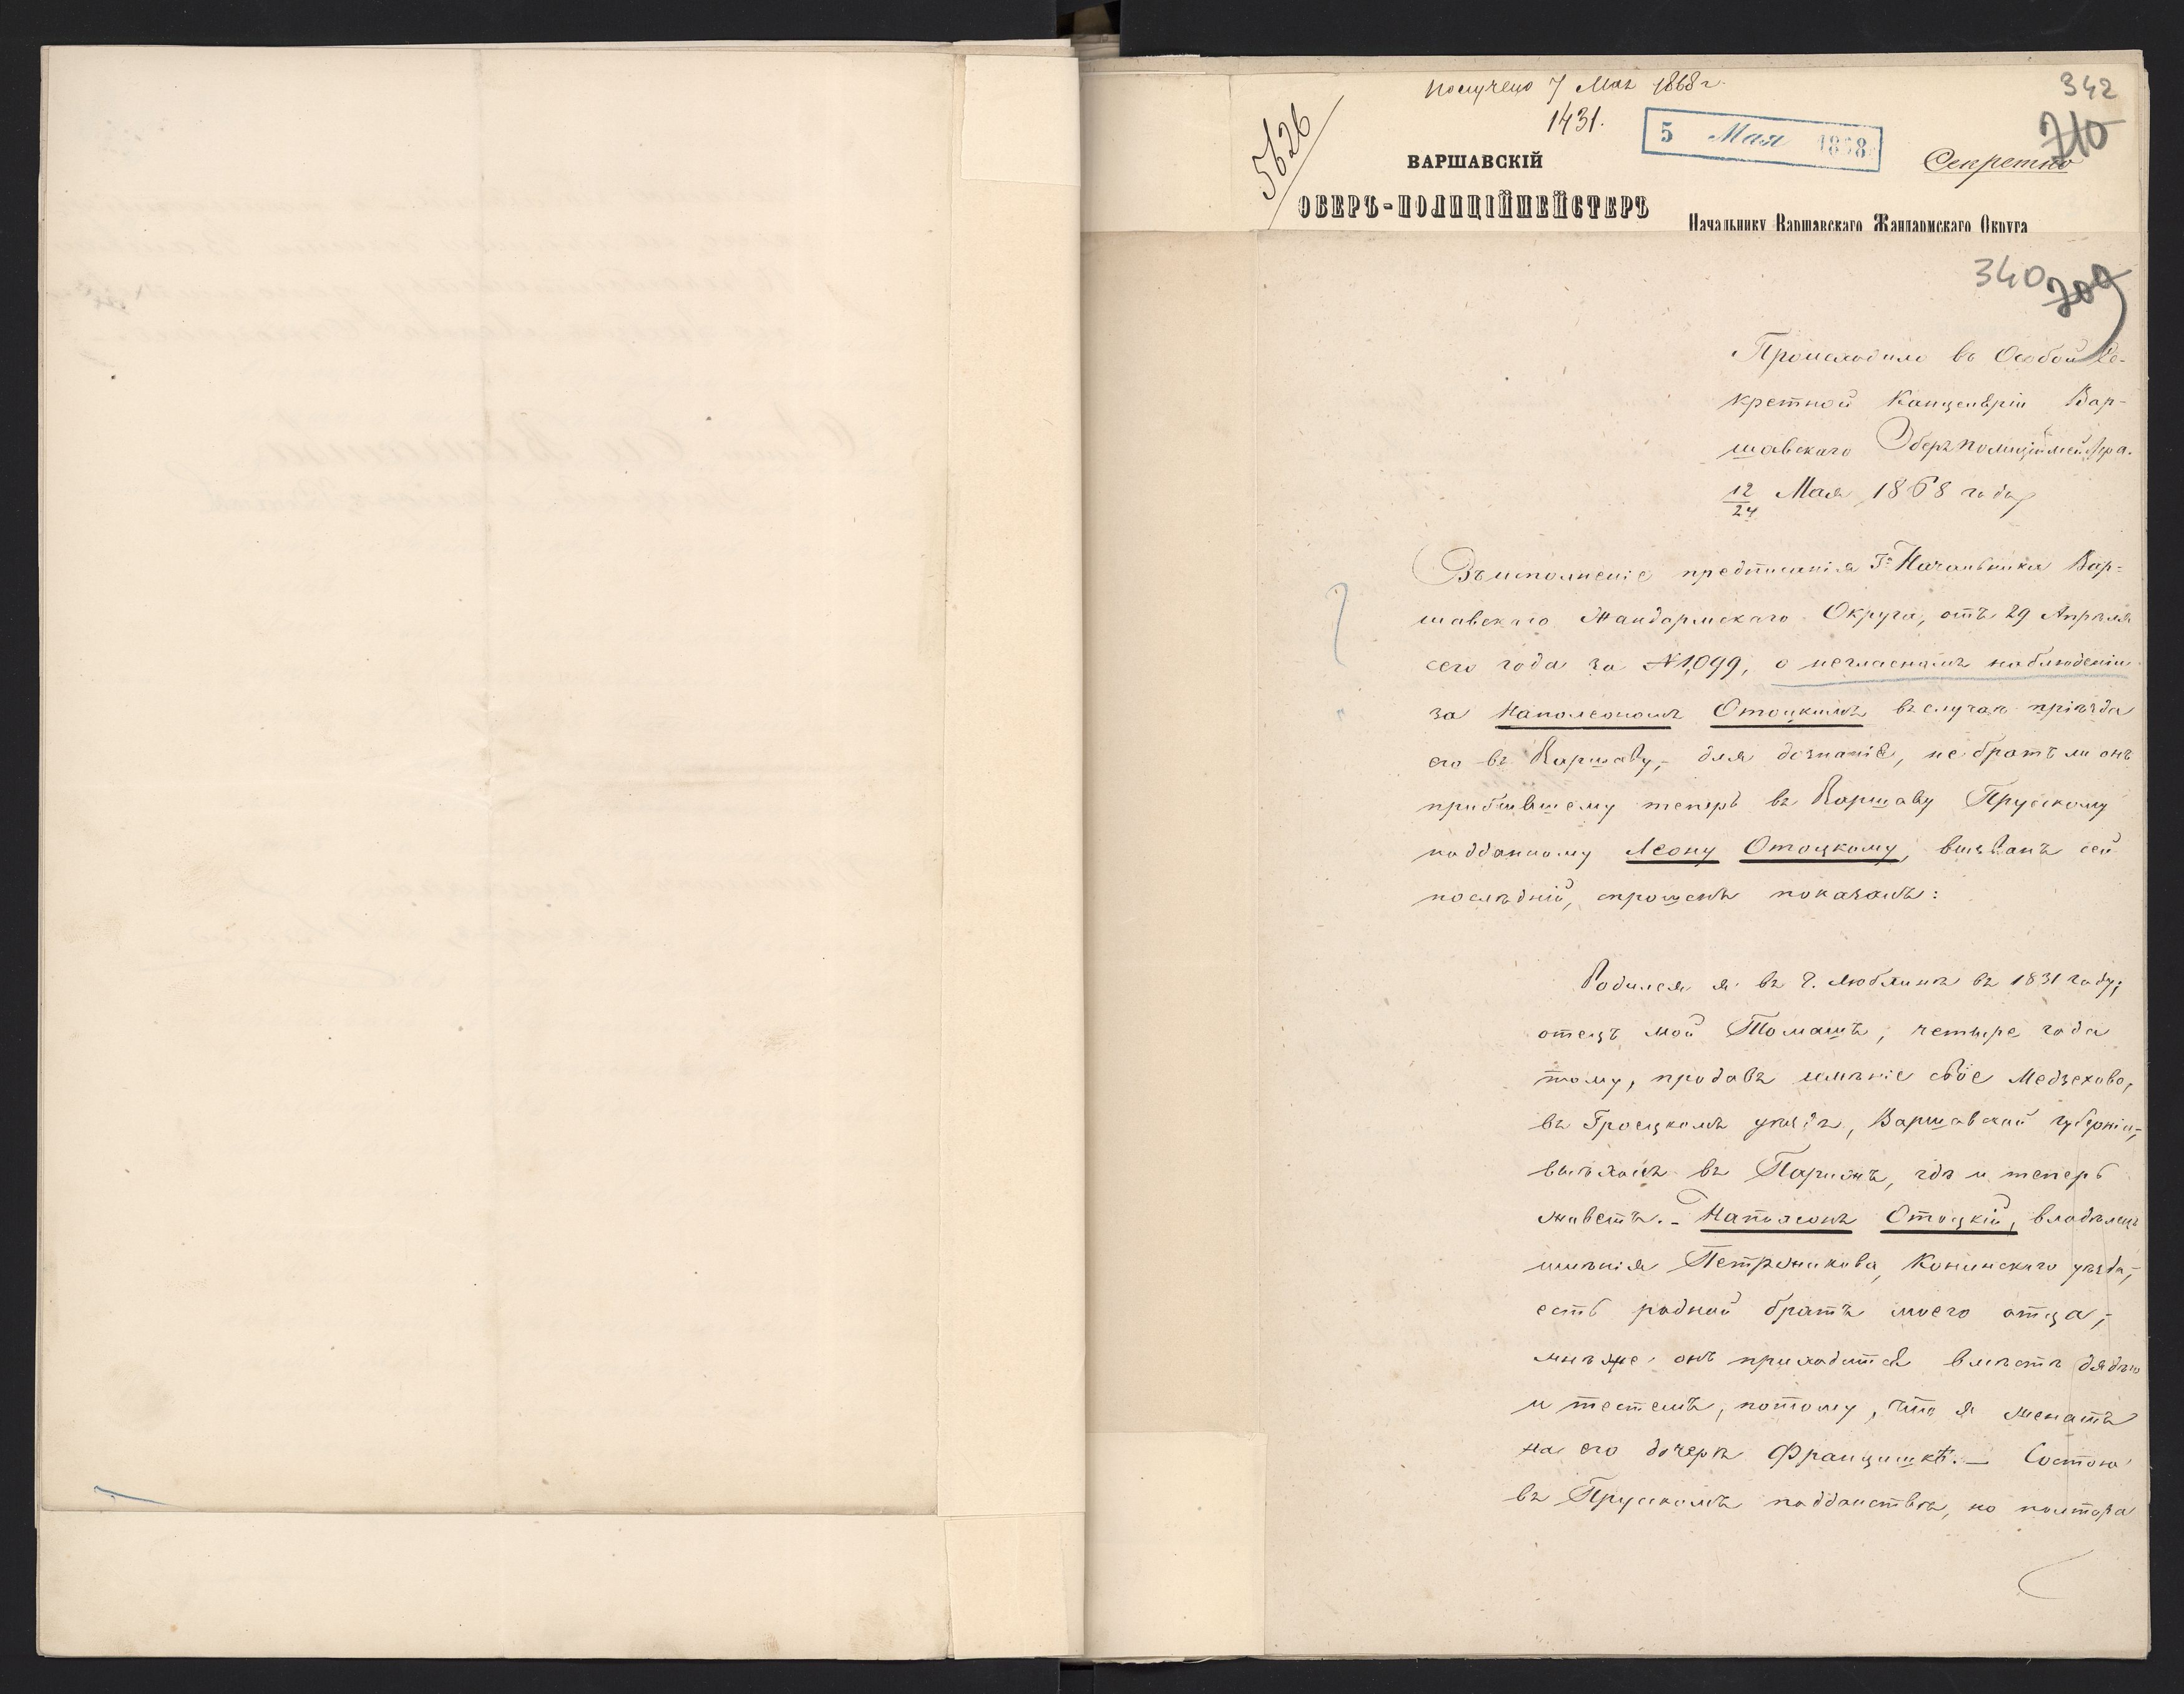 получено 7 Мая 1868 г.
1431.
5626
5 Мая 1868
342
710
Секретно
ВАРШАВСКІЙ
ОБЕРЪ-ПОЛИЦІЙМЕЙСТЕРЪ
Начальнику Варшавскаго Жандармскаго Округа
340
709
Происходило въ Особой Се-
кретной Канцеляріи Вар-
шавскаго Оберъполиціймейстера.
12/24 Мая 1868 года
Въ исполненіе предписанія Гна Начальника Вар-
шавскаго Жандармскаго Округа, отъ 29 Апрѣля
сего года за № 1,099, о негласномъ наблюденіи
за Наполеономъ Отоцкимъ въ случаѣ пріѣзда
его въ Варшаву, для дознанія, не братъ ли онъ
прибывшему теперь въ Варшаву Прусскому
подданному Леону Отоцкому, вызванъ сей
послѣдній, спрошенъ показалъ:
Родился я въ г. Люблинѣ въ 1831 году;
отецъ мой Томашъ, четыре года
тому, продавъ имѣніе свое Медзехово,
въ Гроецкомъ уѣздѣ, Варшавской губерніи,
выѣхалъ въ Парижъ, гдѣ и теперь
живетъ. - Наполеонъ Отоцкій, владѣлецъ
имѣнія Петроникова, Конинскаго уѣзда,
есть родной братъ моего отца,
мнѣ же онъ приходится вмѣстѣ дядею
и тестемъ, потому, что я женатъ
на его дочерѣ Францишкѣ. — Состою
въ Прусскомъ подданствѣ, но полтора